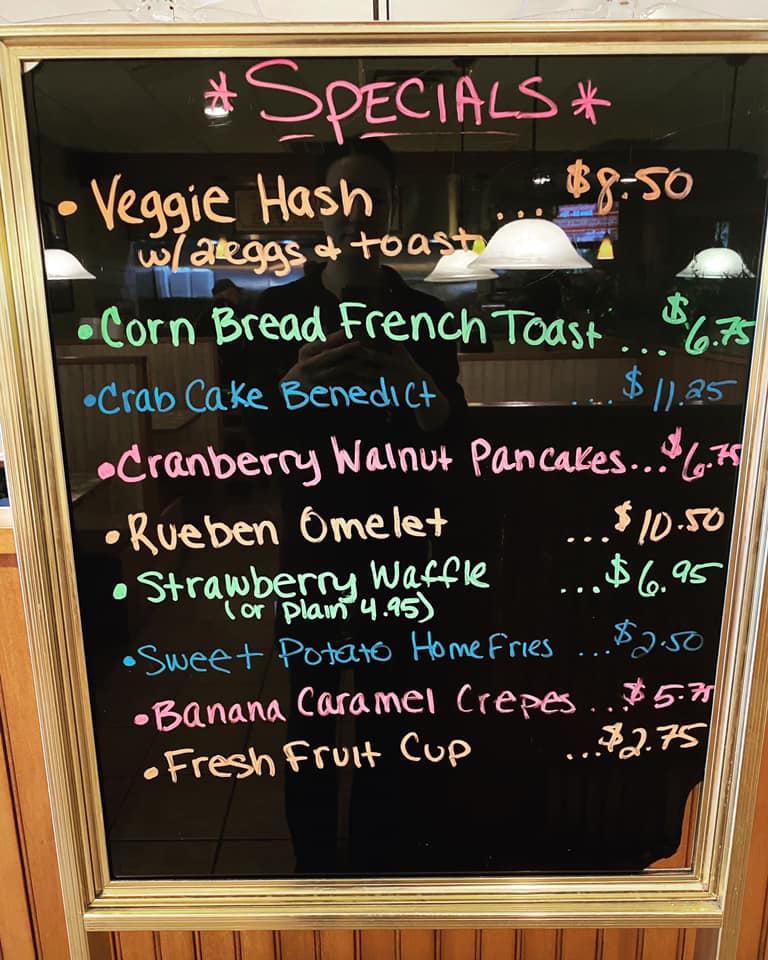 *SPECIALS*
• Veggie Hash ... $8.50
w/2eggs & toast
• Corn Bread French Toast ... $6.75
• Crab Cake Benedict ... $11.25
• Cranberry Walnut Pancakes... $6.75
• Rueben Omelet ... $10.50
• Strawberry Waffle ... $6.95
(or plain 4.95)
• Sweet Potato Home Fries ... $2.50
• Banana Caramel Crepes ... $5.75
• Fresh Fruit Cup ... $2.75